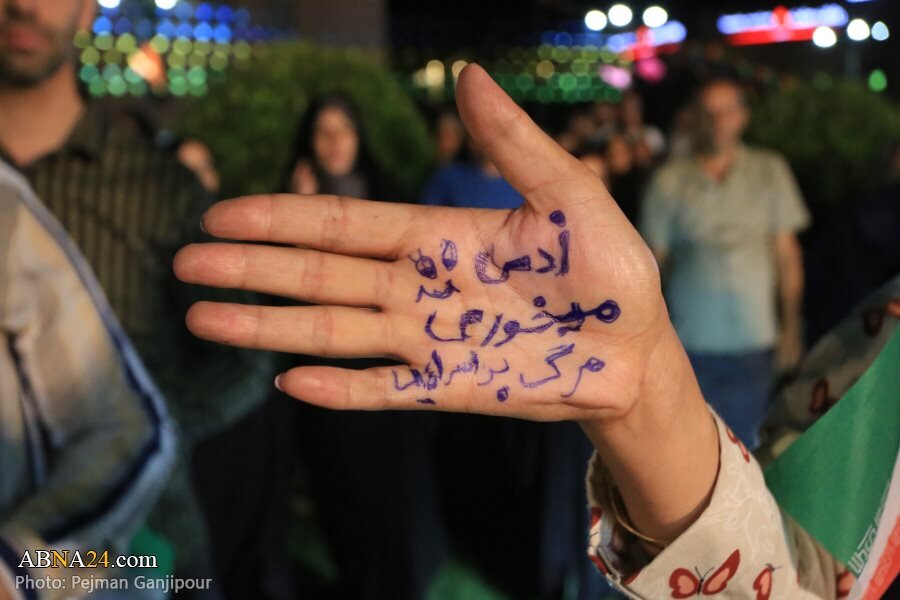 میخوری
مرگ بر اسراییل
ABNA24.com
Photo: Pejman Ganjipour